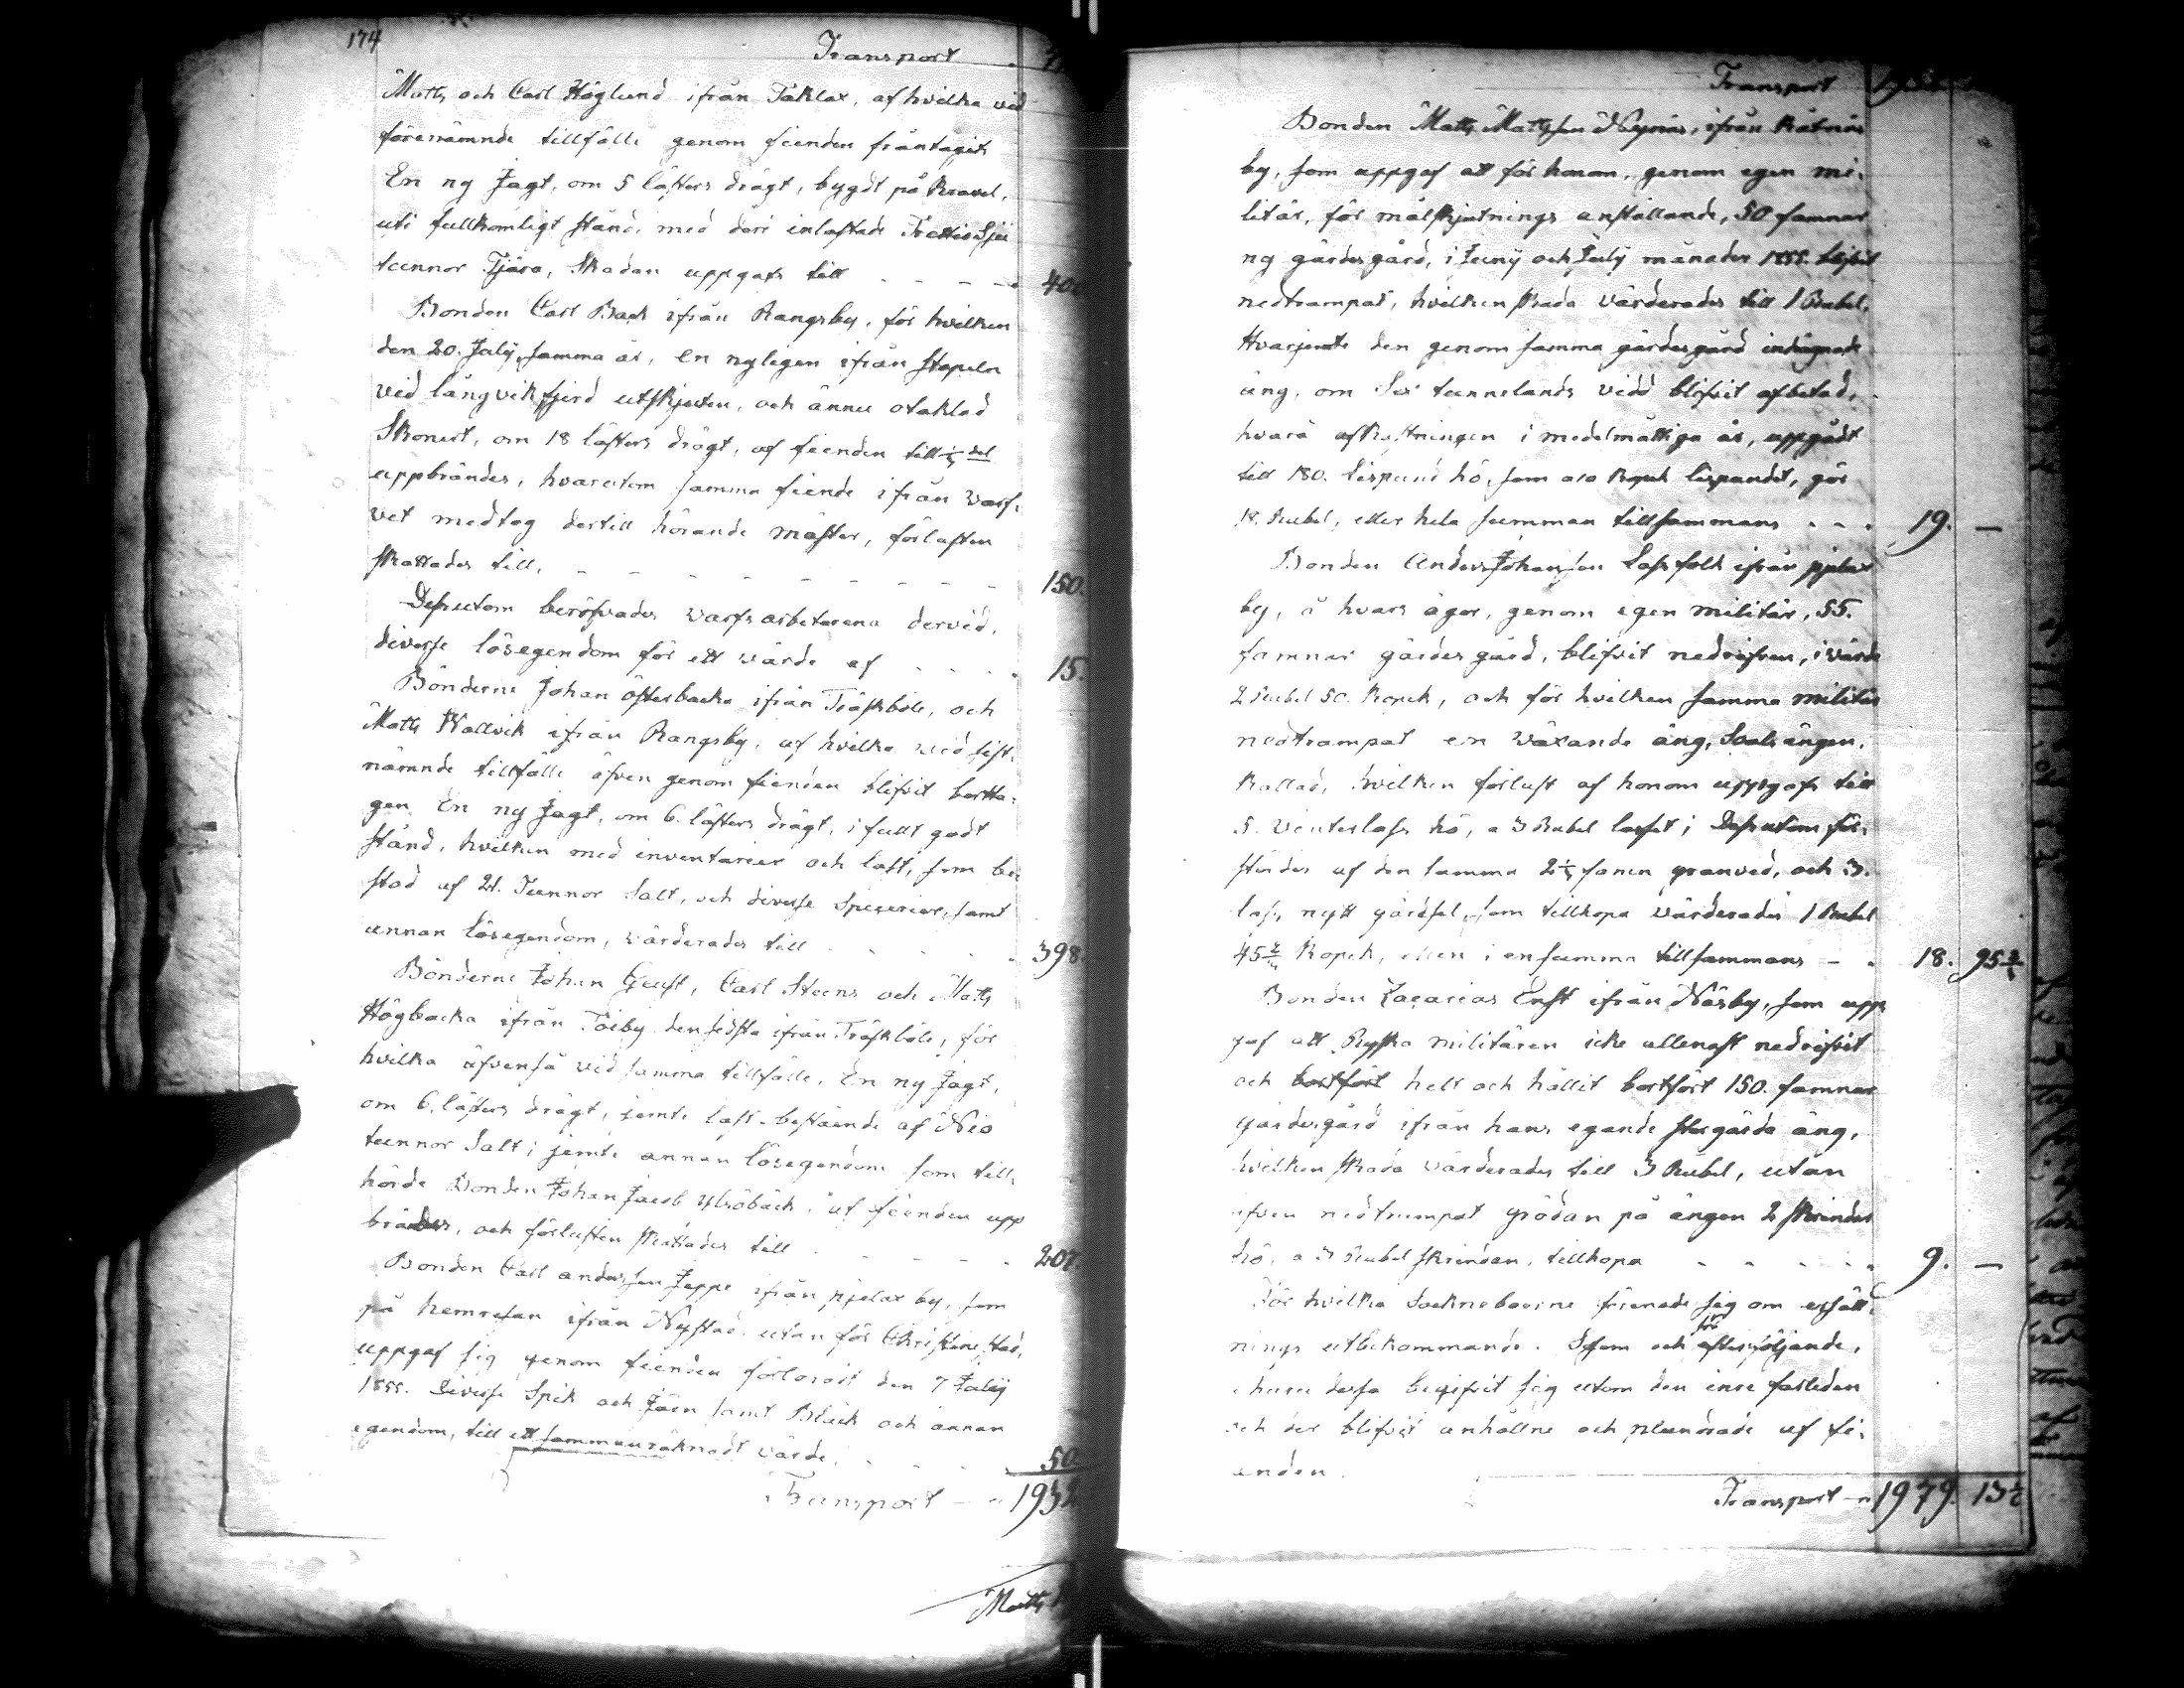 174
Transport
Matts och Carl Höglund ifrån Täklax, af hvilka vid
förenämnde tillfälle genom fienden fråntagits
En ny Jagt, om 5 läster drägt, bygdt på Kravel,
uti fullkomligt stånd, med deri inlastade Trettiosju
tunnor Tjära, Skadan uppgafs till - - - - 400
Bonden Carl Back ifrån Rangsby, för hvilken
den 20. July, samma år, en nyligen ifrån stapeln
vid långvikfjerd utskjuten, och ännu otaklad
Skonert, om 18 lästers drägt, af fienden till del
uppbrändes, hvarutom samma fiende ifrån Varf-
vet medtog dertill hörande mäster, förlusten
skattades till, - - - - - - - 150.
Dessutom beröfvades varfsarbetarena dervid,
diverse lösegendom för ett värde af - - - - 15.
Bönderne Johan Österbacka ifrån Träskböle, och
Matts Wallvik ifrån Rangsby, af hvilka vid sist-
nämnde tillfälle äfven genom fienden blifvit bortta-
gen En ny Jagt, om 6. lästers drägt, i fullt godt
stånd, hvilken med inventarier och last, som be-
stod af 21. Tunnor Salt, och diverse Specerier, samt
annan lösegendom, värderades till - - - - 398.
Bönderne Johan Gust, Carl Steens och Matts
Högbacka ifrån Töiby den sidsta ifrån Träskböle, för
hvilka äfvenså vid samma tillfälle, En ny Jagt,
om 6. lästers drägt, jemte last bestående af Nio
tunnor Salt; jemte annan lösegendom som till-
hörde Bonden Johan Jacob, af fienden upp
brändes, och förlusten skattades till - - - - 207.
Bonden Carl Andersson Jeppe ifrån pjelax by, som
på hemresan ifrån Nystad, utanför Christinestad,
uppgaf sig genom fienden förlorat den 7 July
1855. Diverse Spik och Järn samt Bläck och annan
egendom, till ett sammanräknadt värde - - - - 50.
Transport - - 1932
Matts
Transport
Bonden Matts Mattsson Nynäs, ifrån Nätnäs
by, som uppgaf att för honom, genom egen mi-
litär, för målskjutnings anställande, 50 famnar
ny gärdesgård, i Juny och July månader 1855. blifvit
nedtrampat, hvilken skada värderades till 1 Rubel,
Hvarjemte den genom samma gärdesgård inhägnade
äng, om Sex tunnelands vidd blifvit afbetad,
hvarå afkastningen i medelmåttiga år, uppgådt
till 180. lispund hö, som a 10 Kopek lispundet, gör
18. Rubel, eller hela summan tillsammans - - - 19. —
Bonden Anders Johansson Lassfolk ifrån pjelax
by, å hvars ägor, genom egen militär, 55.
famnar gärdesgård, blifvit nedrifven, i värde
2 Rubel 50. Kopek, och för hvilken samma militär
nedtrampat en växande äng, Svalsängen,
kallad, hvilken förlust af honom uppgafs till
5. vinterlass hö, a 3 Rubel lasset; Dessutom för-
stördes af den samma 2½ famn granved, och 3.
lass nytt gärdsel, som tillhopa värderades 1 Rubel
45 Kopek, eller i en summa tillsammans - - 18. 95
Bonden Zacarias Enst ifrån Näsby, som upp
gaf att Ryska militären icke allenast nedrifvit
och bortfört helt och hållit bortfört 150. famnar
gärdesgård ifrån hans egande storgärda äng,
hvilken skada värderades till 3 Rubel, utan
äfven nedtrampat grödan på ängen 2 skrindor
hö, a 3 Rubel skrindan, tillhopa - - - - 9. —
För hvilka Sockneboerne förenade sig om ersätt-
nings utbekommande. Såsom och för efterföljande,
ehuru dessa begifvit sig utom den inre farleden
och der blifvit anhållne och plundrade af fi-
enden.
Transport - - 1979. 13½